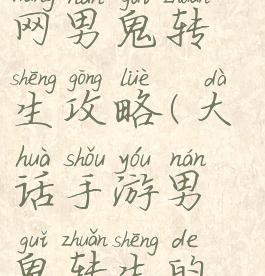 wǎng nán guǐ zhuǎn
网男鬼转
shēng gōng lüè dà
生攻略(大
huà shǒu yóu nán
话手游男
guǐ zhuǎn shēng de
鬼转生的